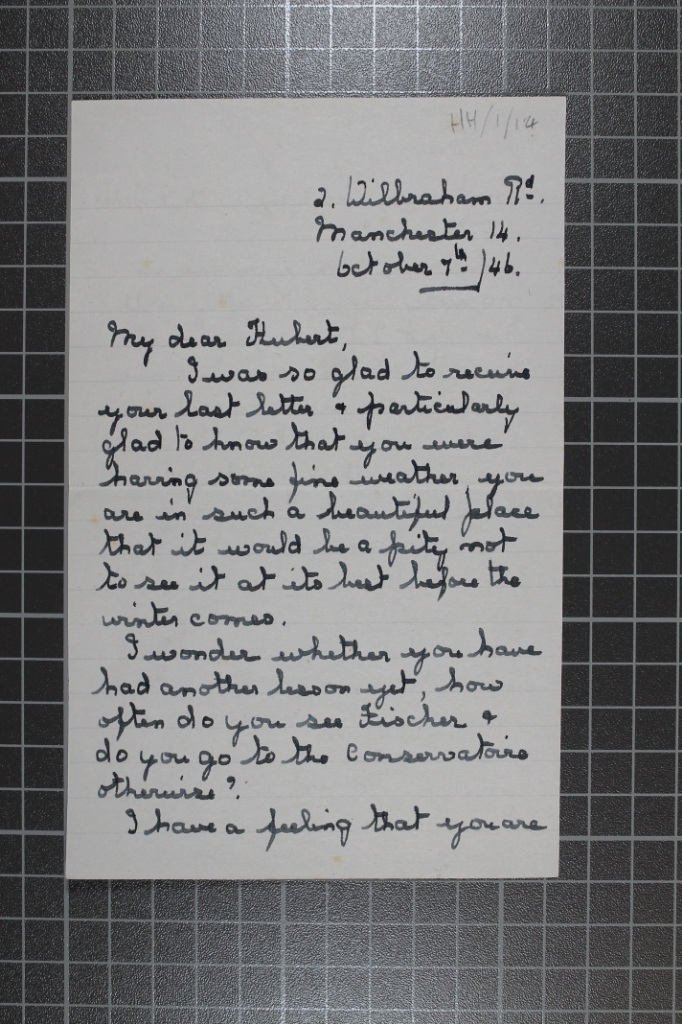 HH/1/14
2. Wilbraham Rd.
Manchester 14.
October 7th/46.
My dear Hubert,
I was so glad to receive
your last letter & particularly
glad to know that you were
having some fine weather, you
are in such a beautiful place
that it would be a pity not
to see it at its best before the
winter comes.
I wonder whether you have
had another lesson yet, how
often do you see Fischer &
do you go to the Conservatoire
otherwise?
I have a feeling that you are